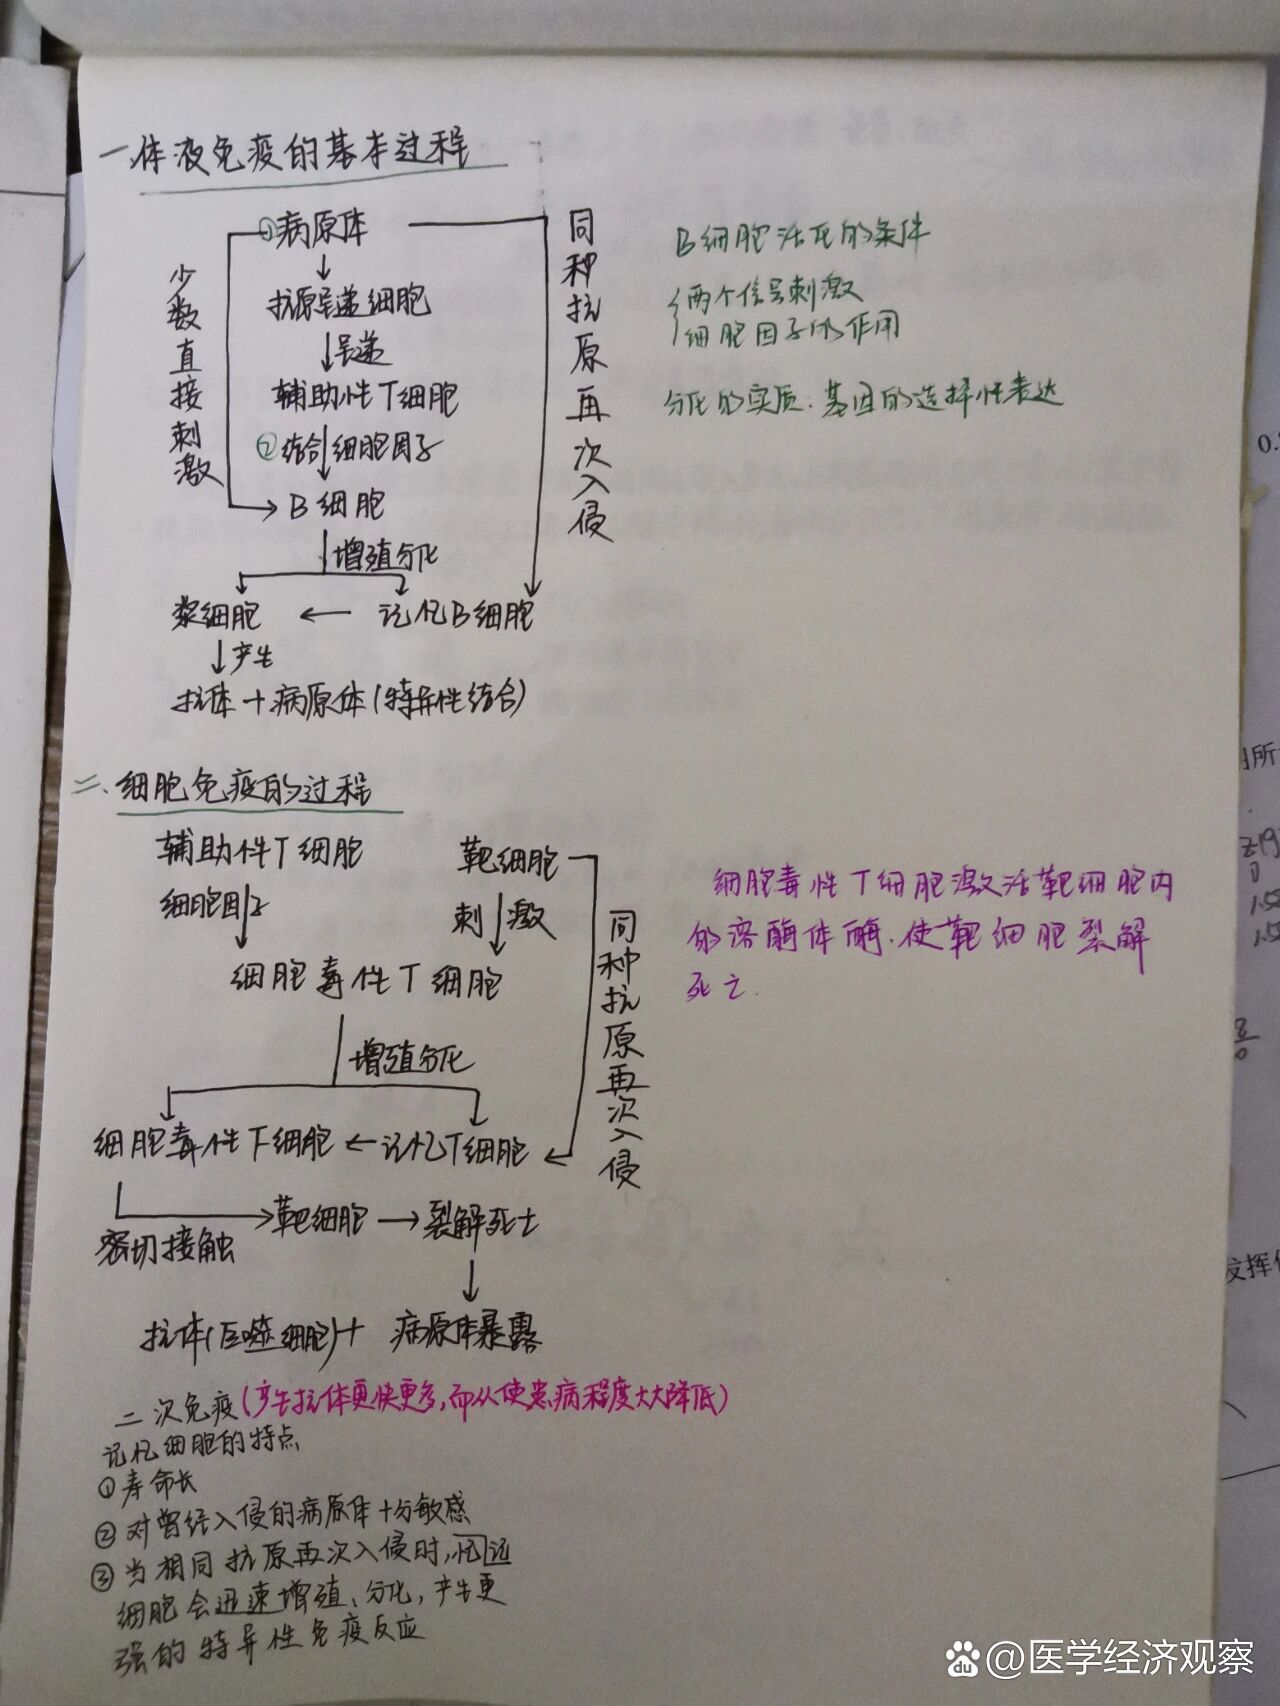 一、体液免疫的基本过程
①病原体
少数直接刺激
同种抗原再次入侵
抗原呈递细胞
呈递
辅助性T细胞
②结合 细胞因子
B细胞
增殖分化
浆细胞 ← 记忆B细胞
产生
抗体+病原体(特异性结合)
B细胞活化的条件
两个信号刺激
细胞因子的作用
分化的实质:基因的选择性表达
二、细胞免疫的过程
辅助性T细胞 靶细胞
细胞因子 刺激
同种抗原再次入侵
细胞毒性T细胞
增殖分化
细胞毒性T细胞 ← 记忆T细胞
密切接触
靶细胞 → 裂解死亡
抗体(巨噬细胞)+ 病原体暴露
细胞毒性T细胞激活靶细胞内
的溶酶体酶,使靶细胞裂解
死亡.
二次免疫(产生抗体更快更多,而从使患病程度大大降低)
记忆细胞的特点
①寿命长
②对曾经入侵的病原体十分敏感
③当相同抗原再次入侵时,忆记
细胞会迅速增殖、分化,产生更
强的特异性免疫反应
0.
所
1.5
1.5
8
0
发挥
Bai du @医学经济观察